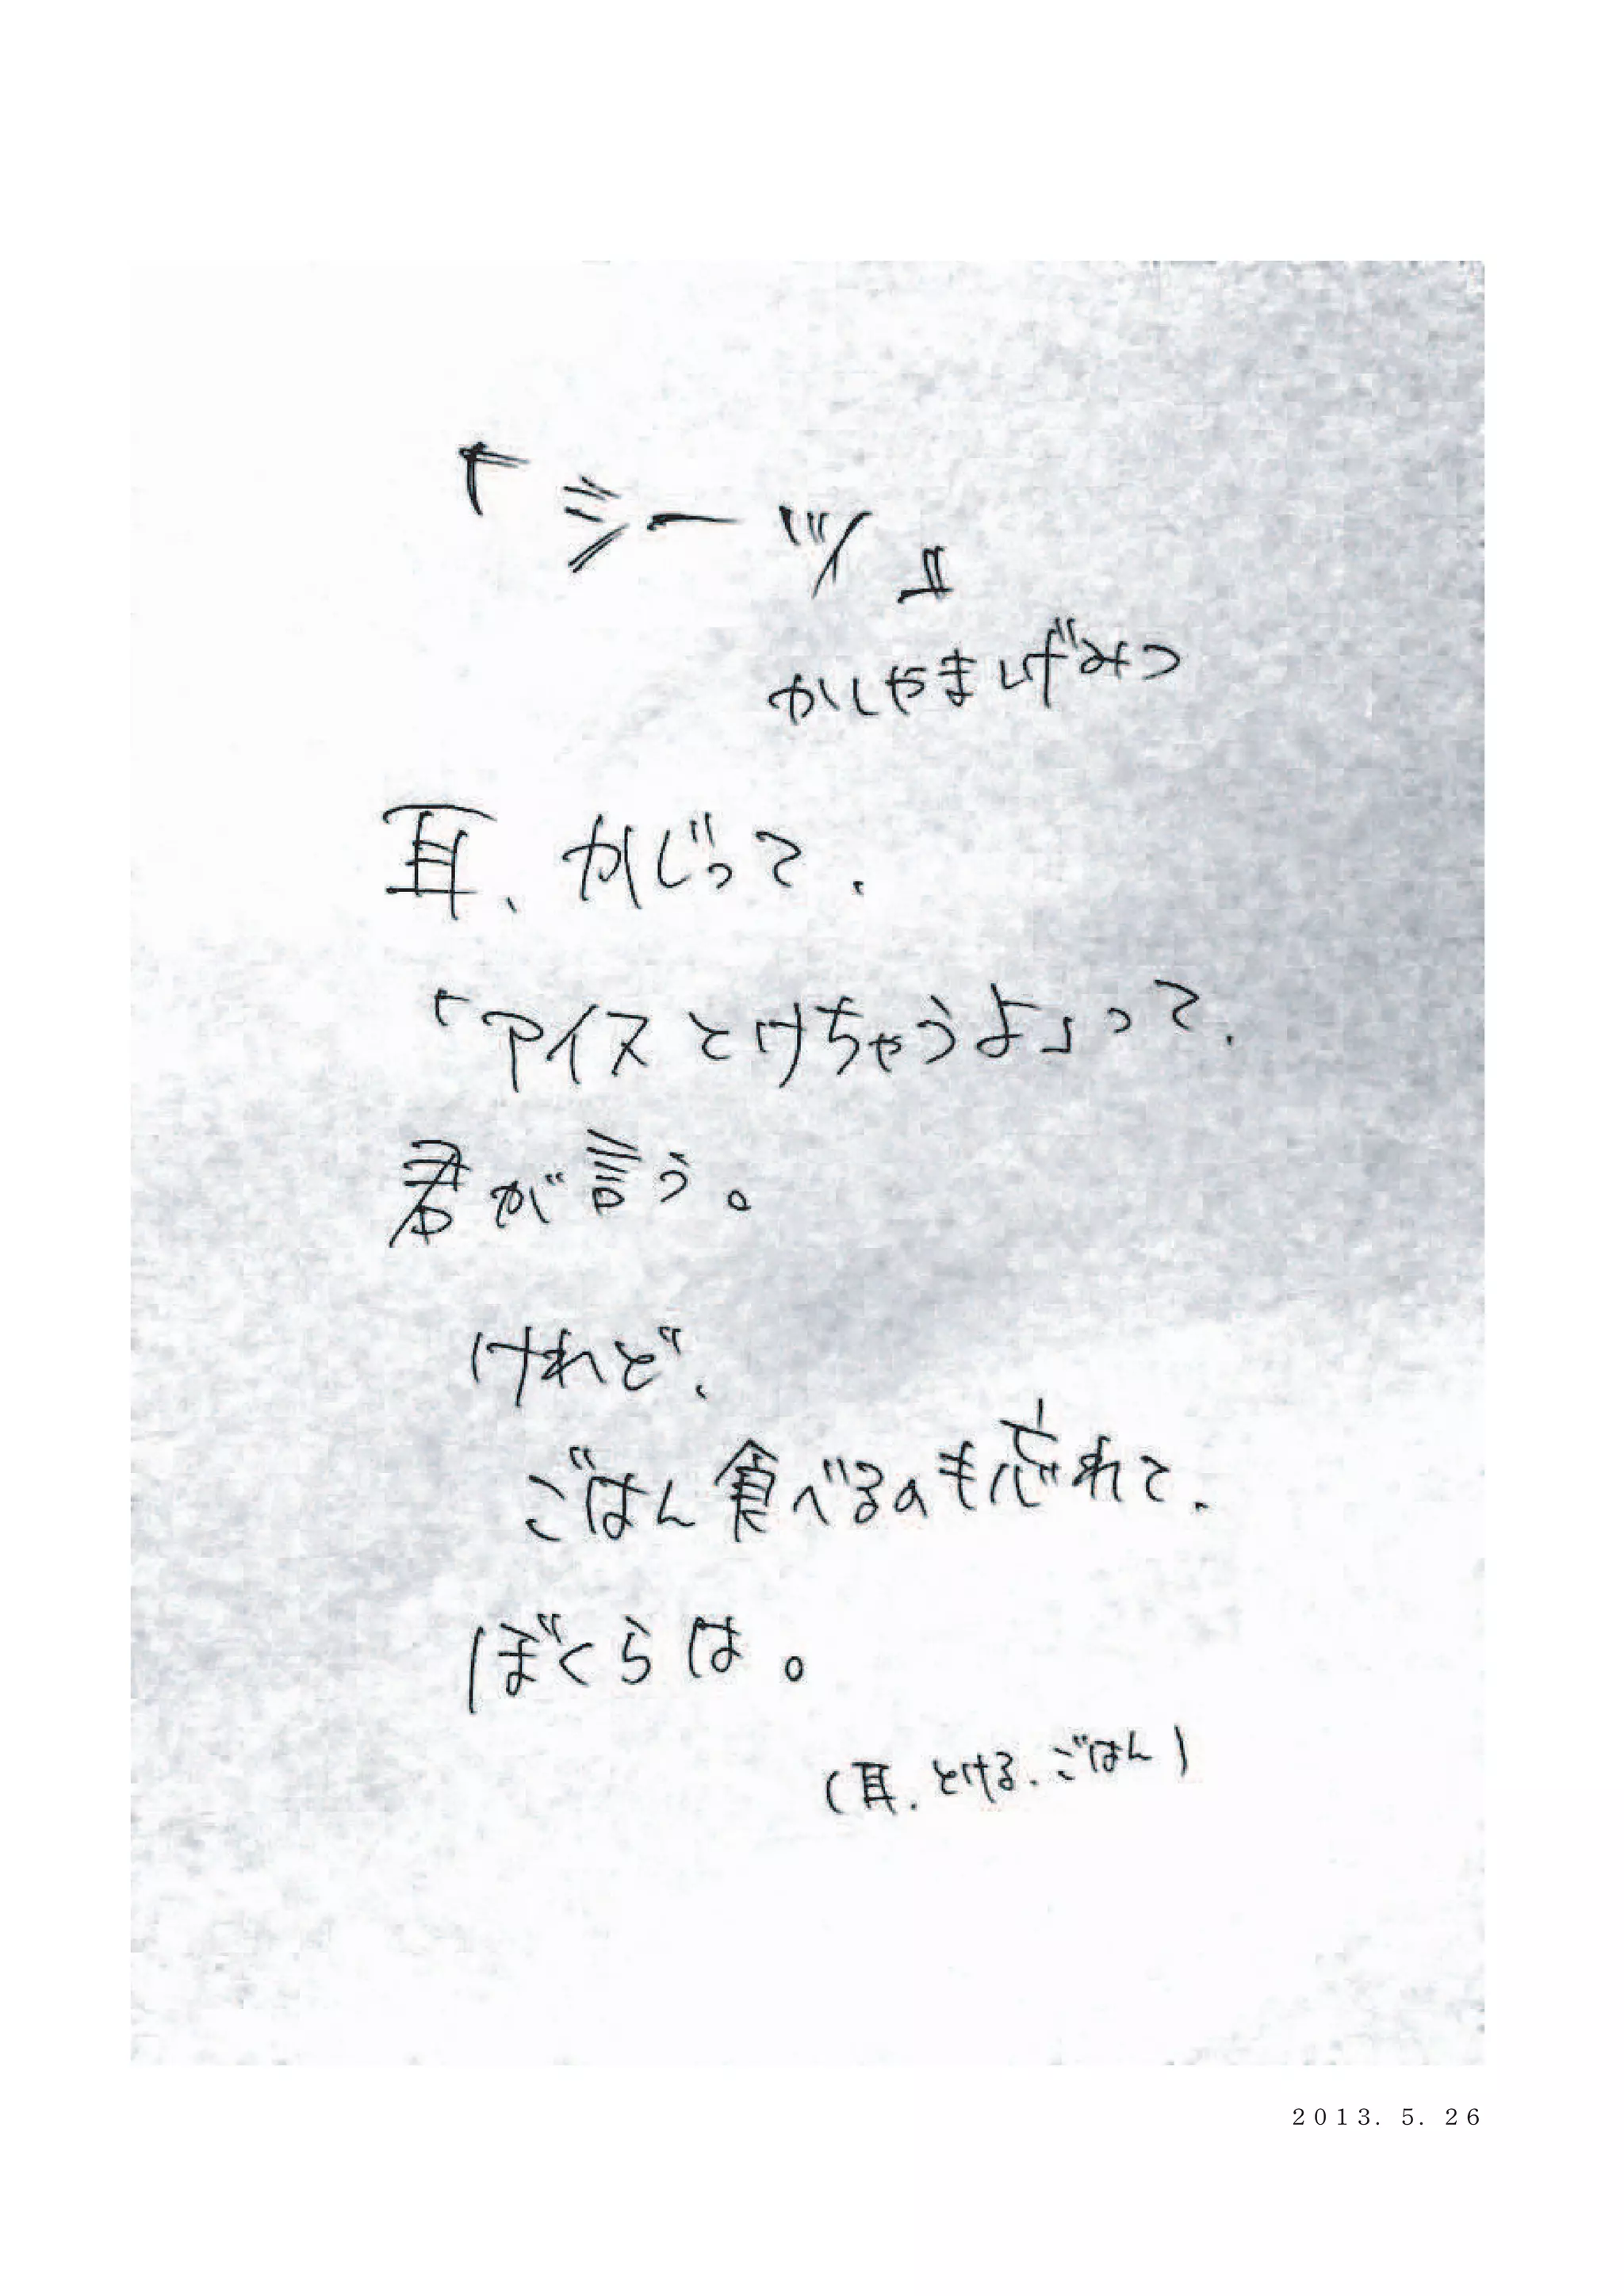 『シーツ』
かしやましげみつ
耳、かじって、
「アイスとけちゃうよ」って、
君が言う。
けれど、
ごはん食べるのも忘れて、
ぼくらは。
(耳、とける、ごはん)
2013. 5. 26